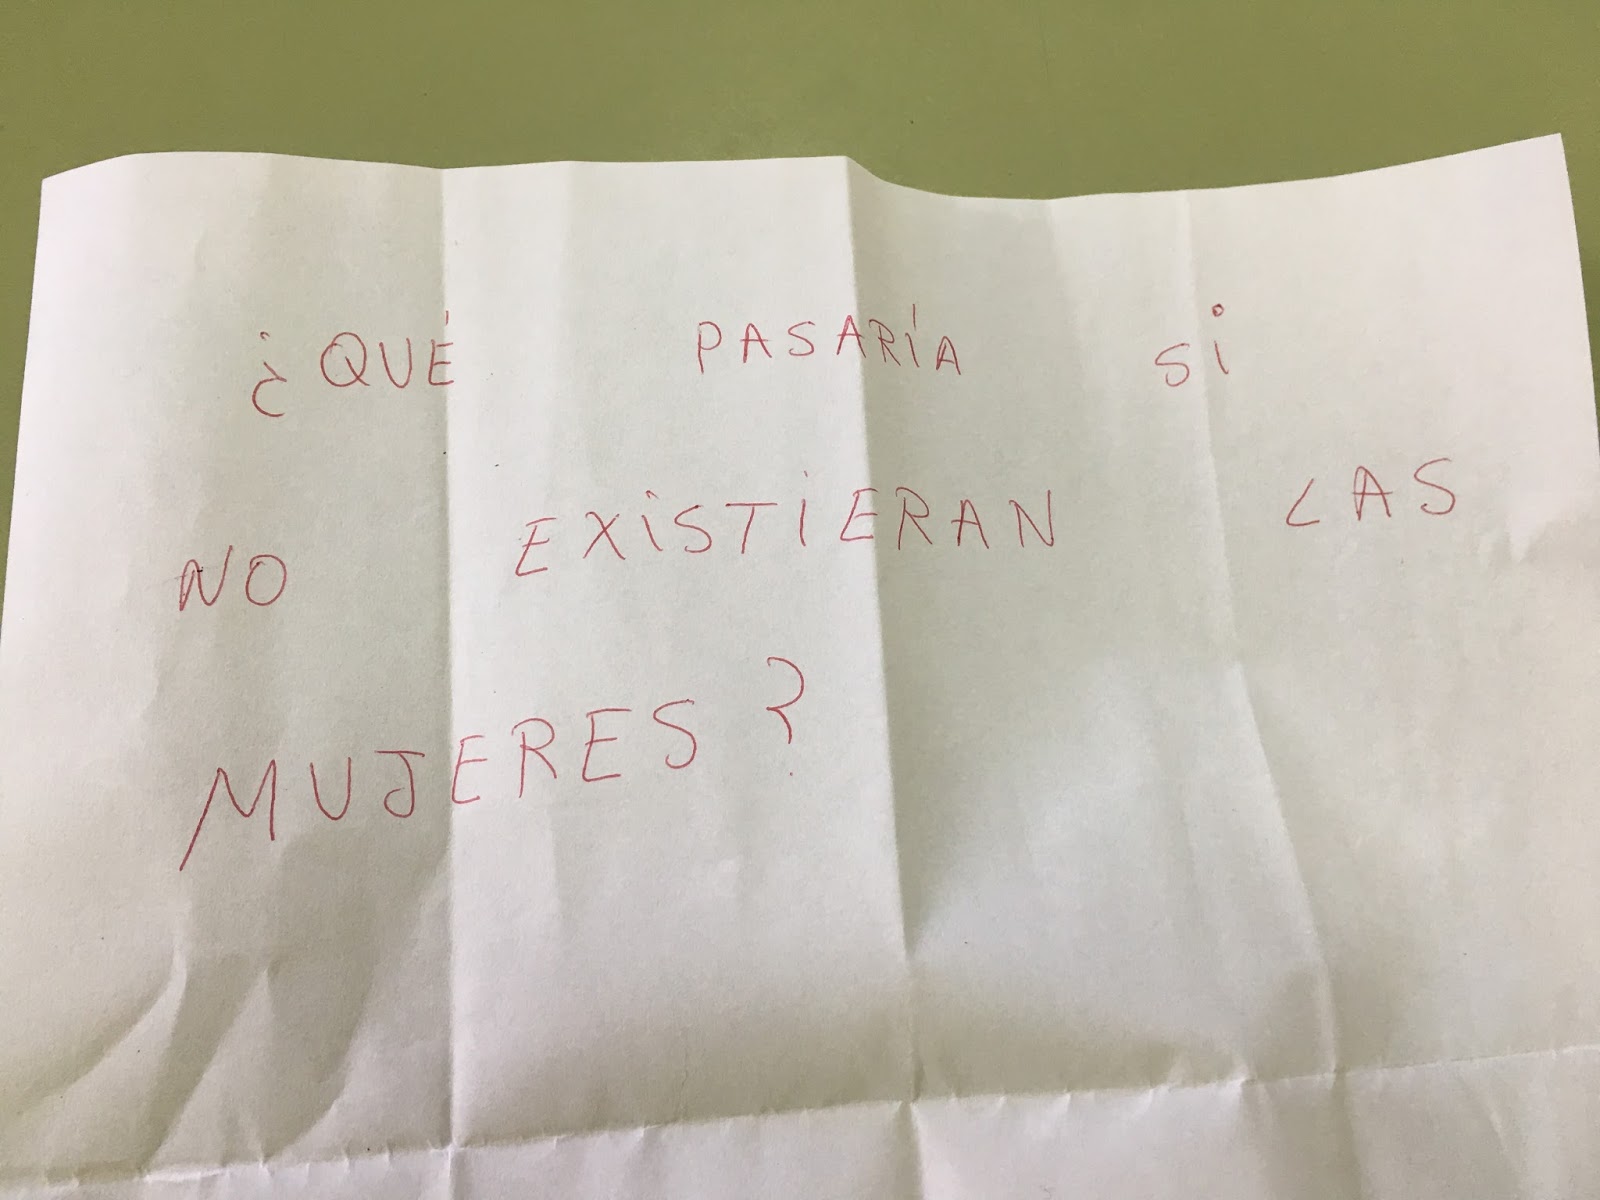 ¿QUÉ PASARÍA Si
NO EXiSTiERAN LAS
MUJERES?